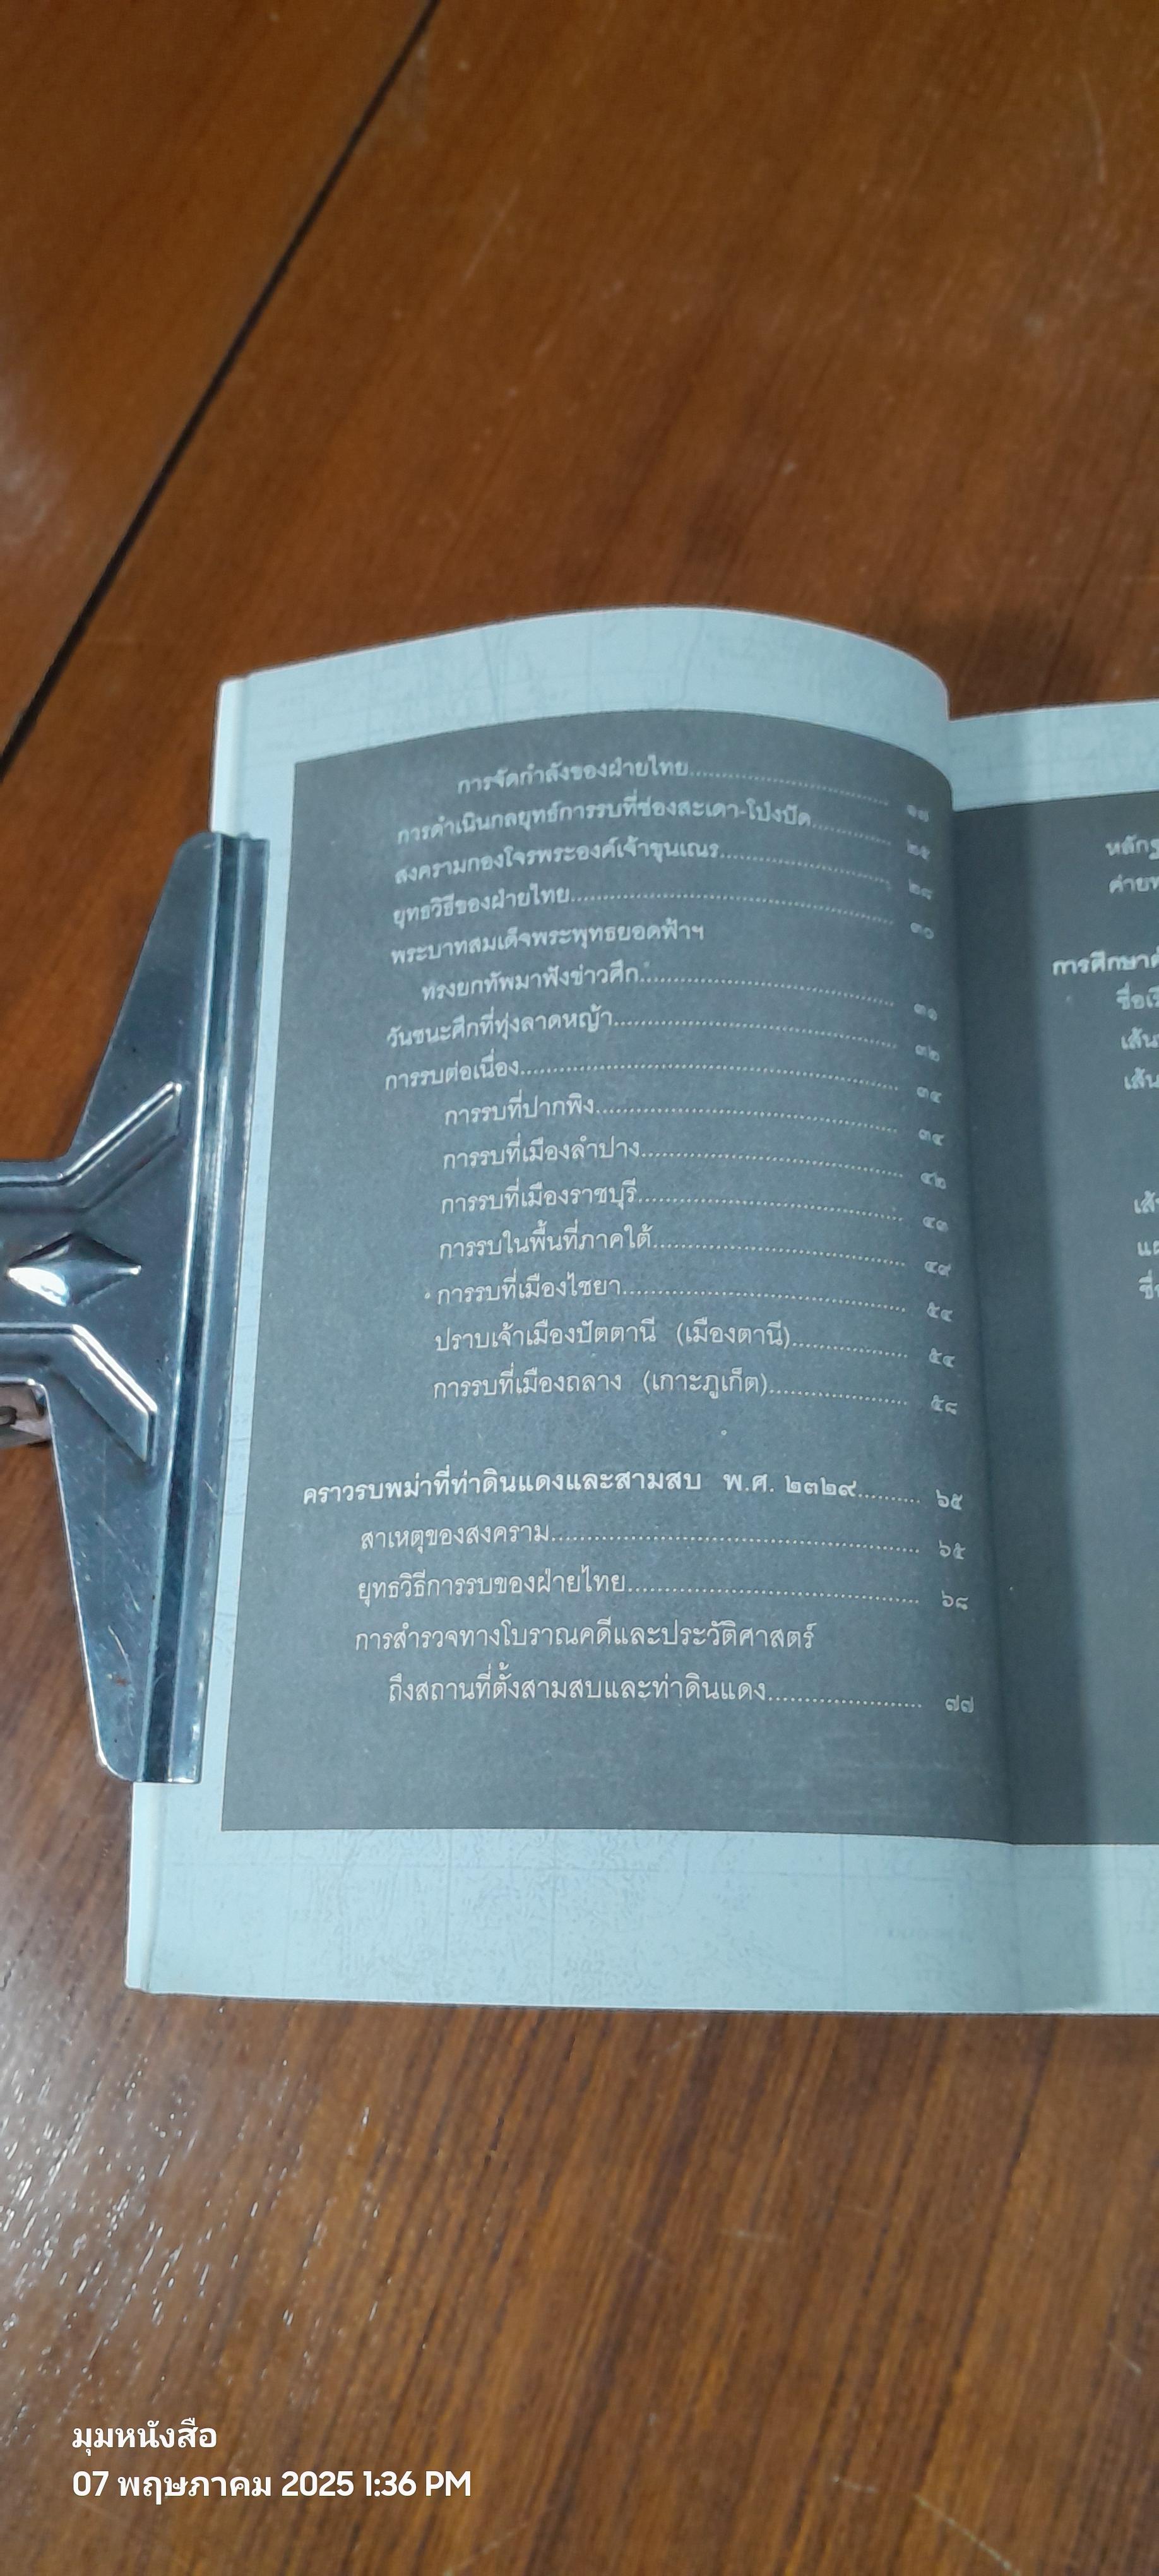 การจัดกำลังของฝ่ายไทย.................... ๑๗
การดำเนินกลยุทธ์การรบที่ช่องสะเดา-โป่งปัด........ ๒๕
สงครามกองโจรพระองค์เจ้าขุนเณร.................... ๒๘
ยุทธวิธีของฝ่ายไทย.................... ๓๐
พระบาทสมเด็จพระพุทธยอดฟ้าฯ
ทรงยกทัพมาฟังข่าวศึก.................... ๓๑
วันชนะศึกที่ทุ่งลาดหญ้า.................... ๓๒
การรบต่อเนื่อง.................... ๓๔
การรบที่ปากพิง.................... ๓๔
การรบที่เมืองลำปาง.................... ๔๒
การรบที่เมืองราชบุรี.................... ๔๓
การรบในพื้นที่ภาคใต้.................... ๔๙
การรบที่เมืองไชยา.................... ๕๔
ปราบเจ้าเมืองปัตตานี (เมืองตานี).................... ๕๔
การรบที่เมืองถลาง (เกาะภูเก็ต).................... ๕๘
คราวรบพม่าที่ท่าดินแดงและสามสบ พ.ศ. ๒๓๒๙.......... ๖๕
สาเหตุของสงคราม.................... ๖๕
ยุทธวิธีการรบของฝ่ายไทย.................... ๖๘
การสำรวจทางโบราณคดีและประวัติศาสตร์
ถึงสถานที่ตั้งสามสบและท่าดินแดง.................... ๗๗
การศึกษา
มุมหนังสือ
07 พฤษภาคม 2025 1:36 PM